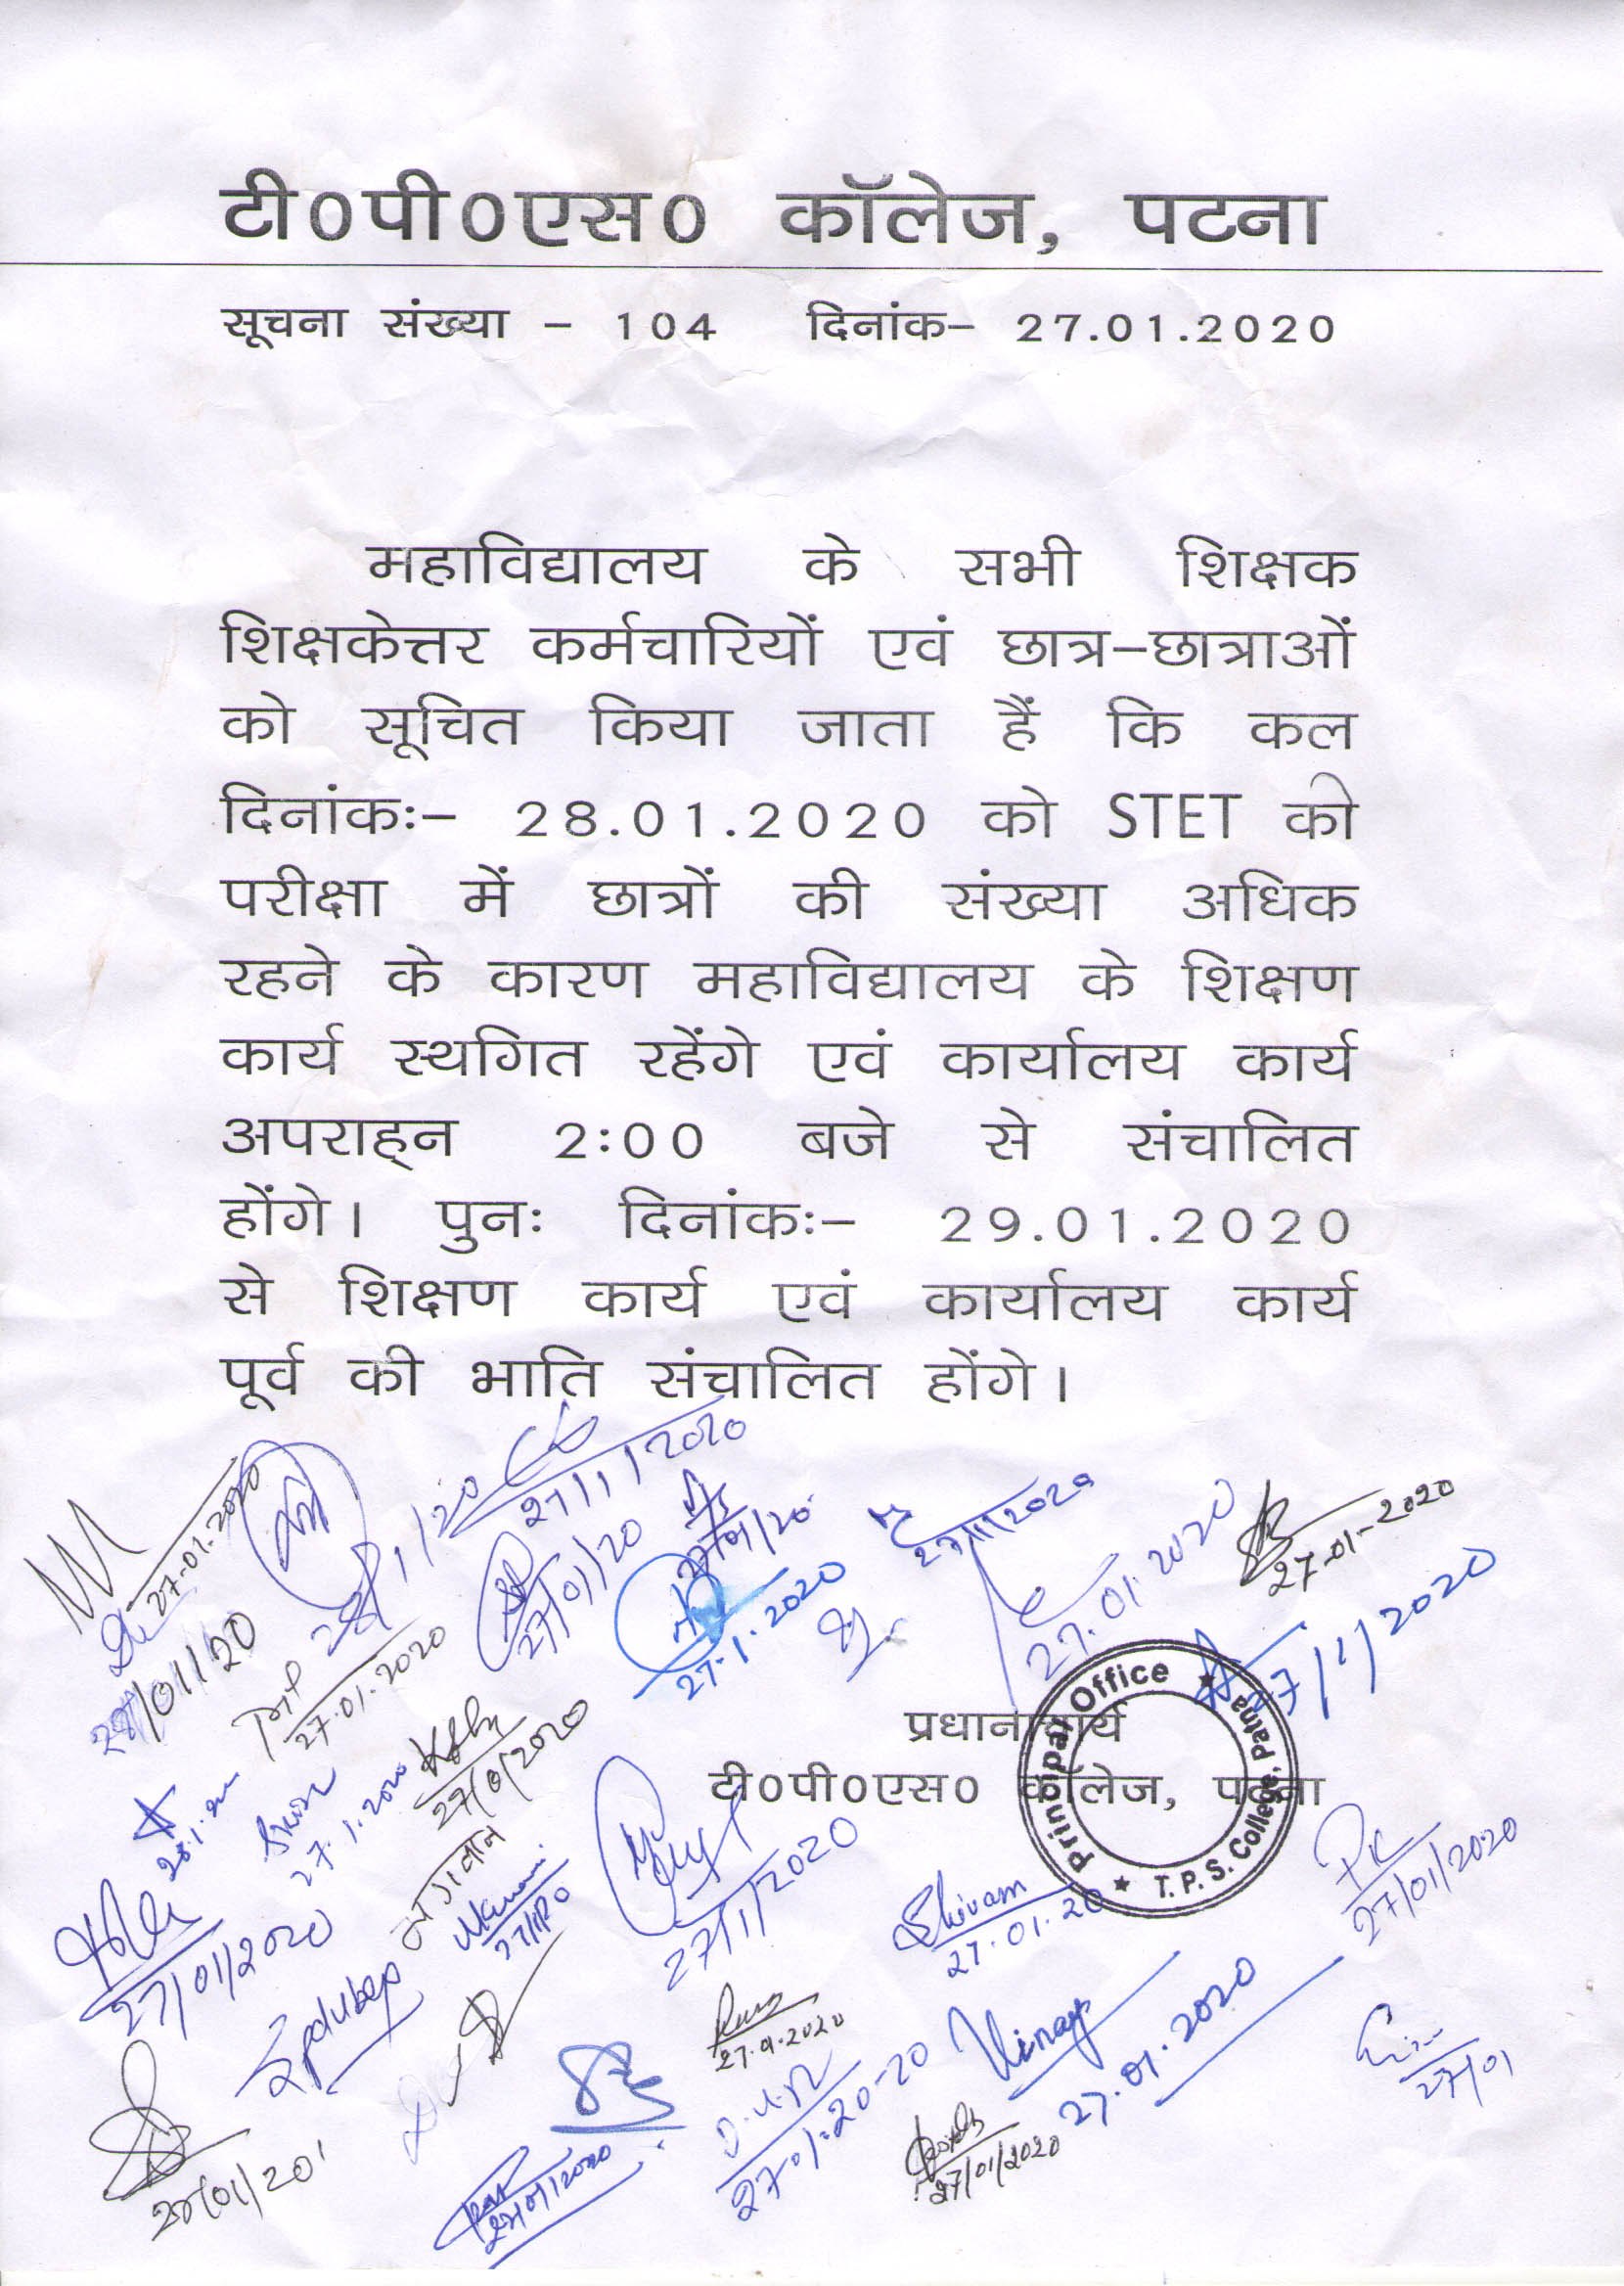 टी०पी०एस० कॉलेज, पटना
सूचना संख्या - 104 दिनांक- 27.01.2020
महाविद्यालय के सभी शिक्षक
शिक्षकेत्तर कर्मचारियों एवं छात्र-छात्राओं
को सूचित किया जाता हैं कि कल
दिनांकः- 28.01.2020 को STET की
परीक्षा में छात्रों की संख्या अधिक
रहने के कारण महाविद्यालय के शिक्षण
कार्य स्थगित रहेंगे एवं कार्यालय कार्य
अपराह्न 2:00 बजे से संचालित
होंगे। पुनः दिनांकः- 29.01.2020
से शिक्षण कार्य एवं कार्यालय कार्य
पूर्व की भाति संचालित होंगे।
27/1/2020
27-01-2020
27.01.2020
27/01/20
27/11/2020
27.01.2020
27-01-2020
27.1.2020
27/1/2020
28/01/20
27.01.2020
प्रधानाचार्य
टी०पी०एस० कॉलेज, पटना
Principal Office
T. P. S. College, Patna
27.1.2020
27/01/2020
27/1/2020
Shivam
27.01.20
PK
27/01/2020
27/01/2020
Spdubey
Vinay
27.01.2020
27/01
27/01/2020